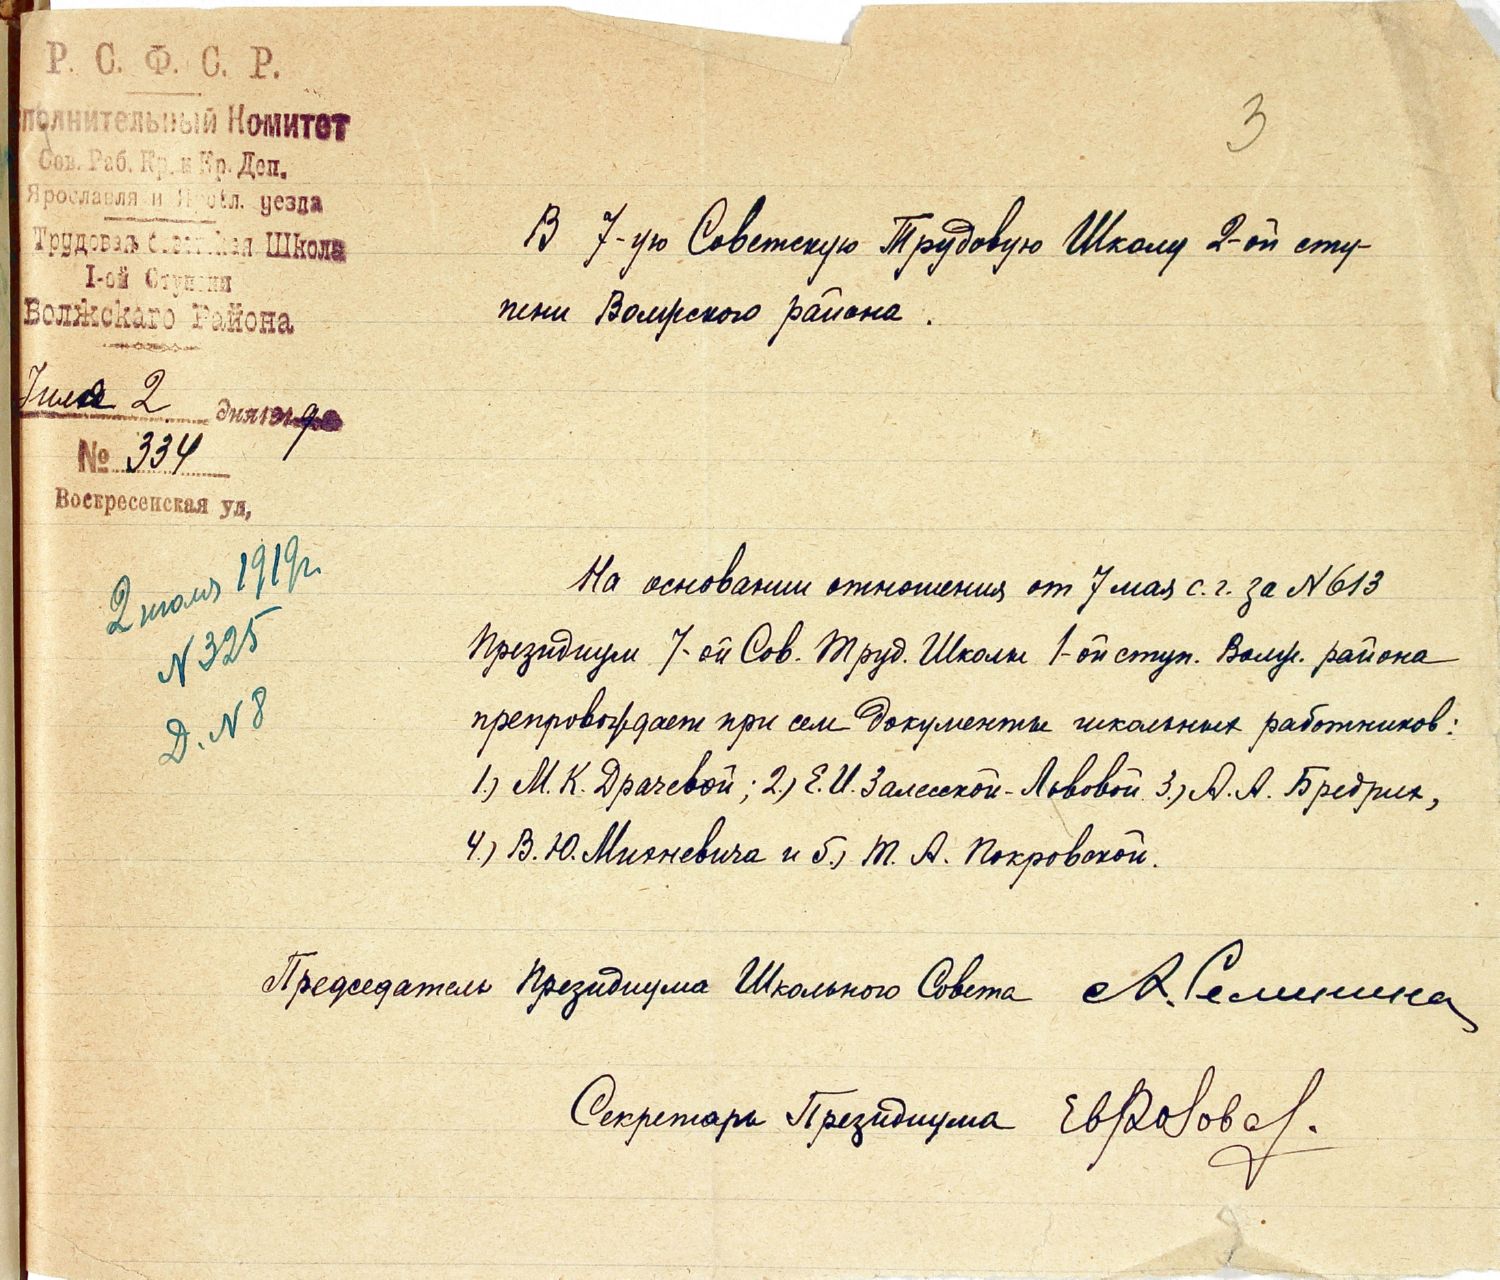 Р. С. Ф. С. Р.
сполнительный Комитет
Сов. Раб. Кр. и Кр. Деп.
Ярославля и Яросл. уезда
Трудовая Школа
I-ой Ступени
Волжскаго Района
Июля 2 дня 1919
№ 334
Воскресенская ул,
2 июля 1919г.
N 325
Д. N 8
3
В 7-ую Советскую Трудовую Школу 2-ой сту-
пени Волжского района.
На основании отношения от 7 мая с. г. за N 613
Президиум 7-ой Сов. Труд. Школы 1-ой ступ. Волж. района
препровождает при сем документы школьных работников:
1.) М. К. Драчевой; 2.) Е. И. Залесской-Львовой 3.) А. А. Бредрих,
4.) В. Ю. Михневича и 5.) Т. А. Покровской.
Председатель Президиума Школьного Совета А. Селинина
Секретарь Президиума